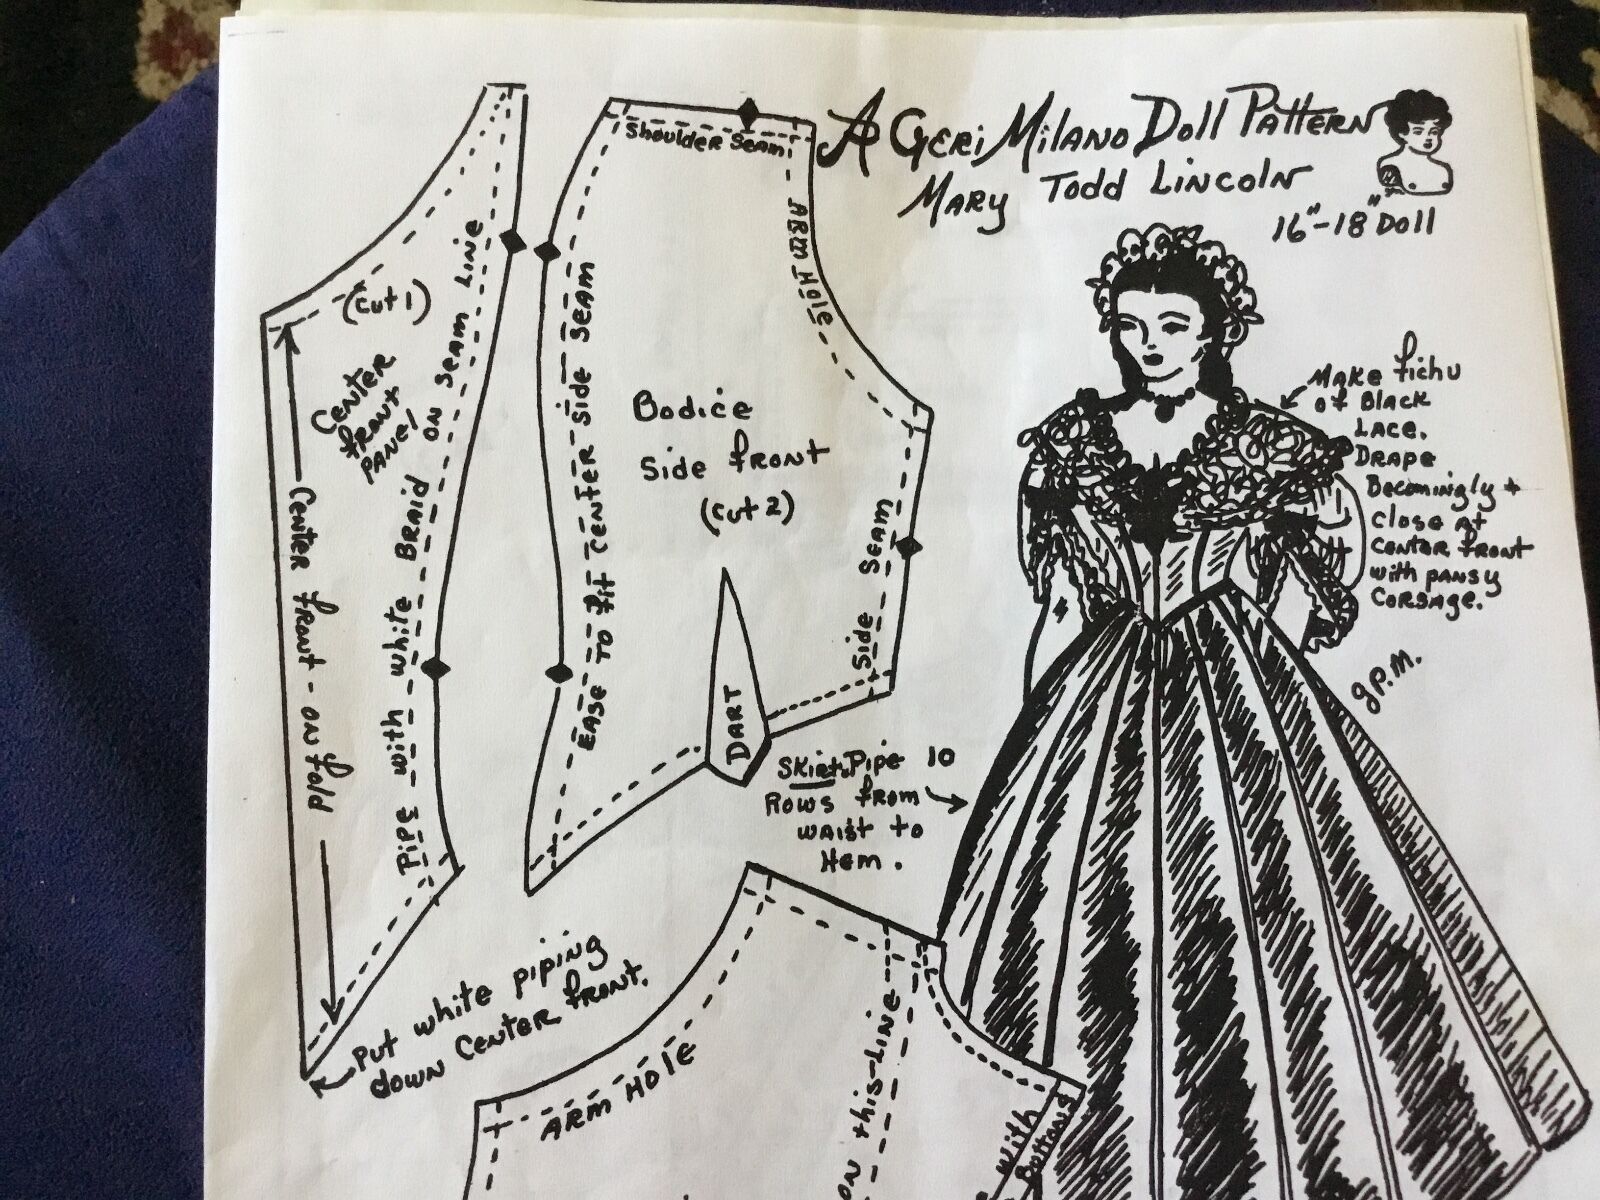 A Geri Milano Doll Pattern
Mary Todd Lincoln
16"-18" Doll
Shoulder Seam
ARM HOLE
(cut 1)
Center
front
PANEL
Center front - on fold
Pipe with white Braid on seam line
EASE TO fit CENTER side SEAM
Bodice
Side front
(cut 2)
Side SEAM
DART
Make fichu
of Black
LACE.
DRAPE
Becomingly +
close at
center front
with pansy
Corsage.
g.P.M.
Skirt. Pipe 10
Rows from
waist to
Hem.
Put white piping
down Center front.
ARM HOLE
on this line
with
Buttons